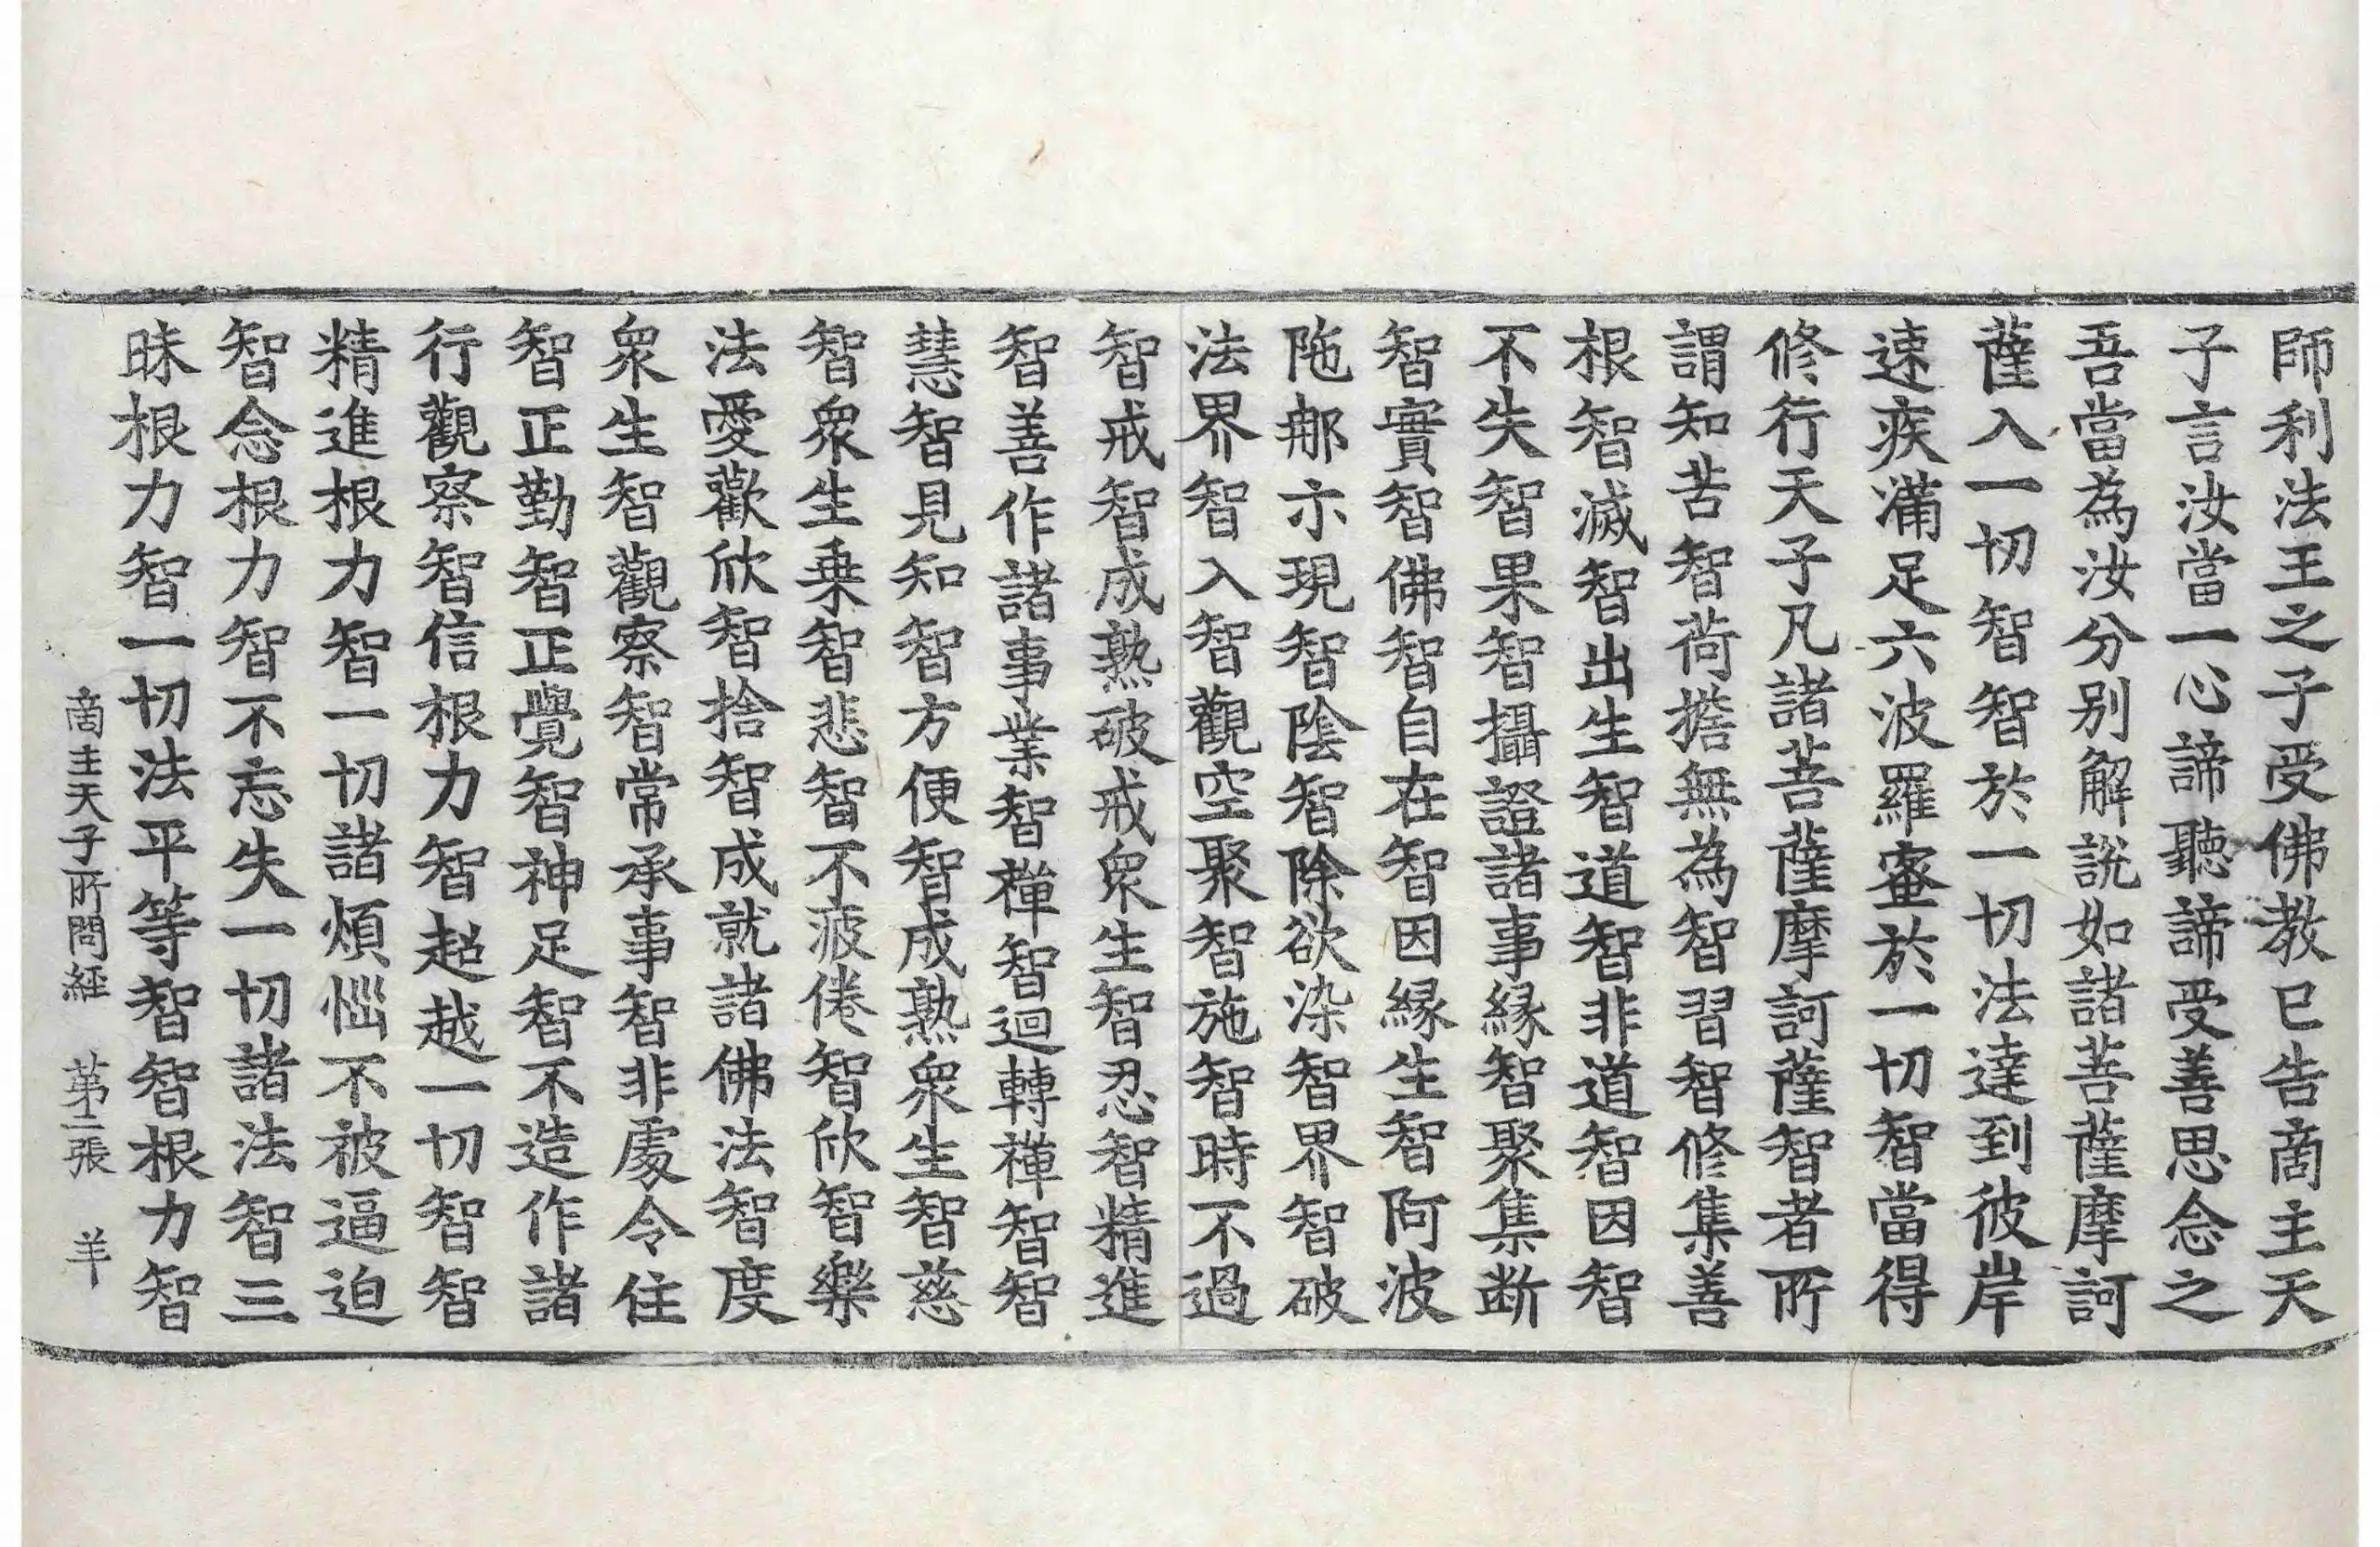 師利法王之子受佛教已告啇主天
子言汝當一心諦聽諦受善思念之
吾當為汝分別解說如諸菩薩摩訶
薩入一切智智於一切法達到彼岸
速疾滿足六波羅蜜於一切智當得
修行天子凡諸菩薩摩訶薩智者所
謂知苦智荷擔無為智習智修集善
根智滅智出生智道智非道智因智
不失智果智攝證諸事緣智聚集斷
智實智佛智自在智因緣生智阿波
陁那示現智陰智除欲染智界智破
法界智入智觀空聚智施智時不過
智戒智成熟破戒衆生智忍智精進
智善作諸事業智禪智迴轉禪智智
慧智見知智方便智成熟衆生智慈
智衆生乗智悲智不疲倦智欣智樂
法愛歡欣智捨智成就諸佛法智度
衆生智觀察智常承事智非處令住
智正勤智正覺智神足智不造作諸
行觀察智信根力智超越一切智智
精進根力智一切諸煩惱不被逼迫
智念根力智不忘失一切諸法智三
昧根力智一切法平等智智根力智
啇主天子所問經　第二張　羊